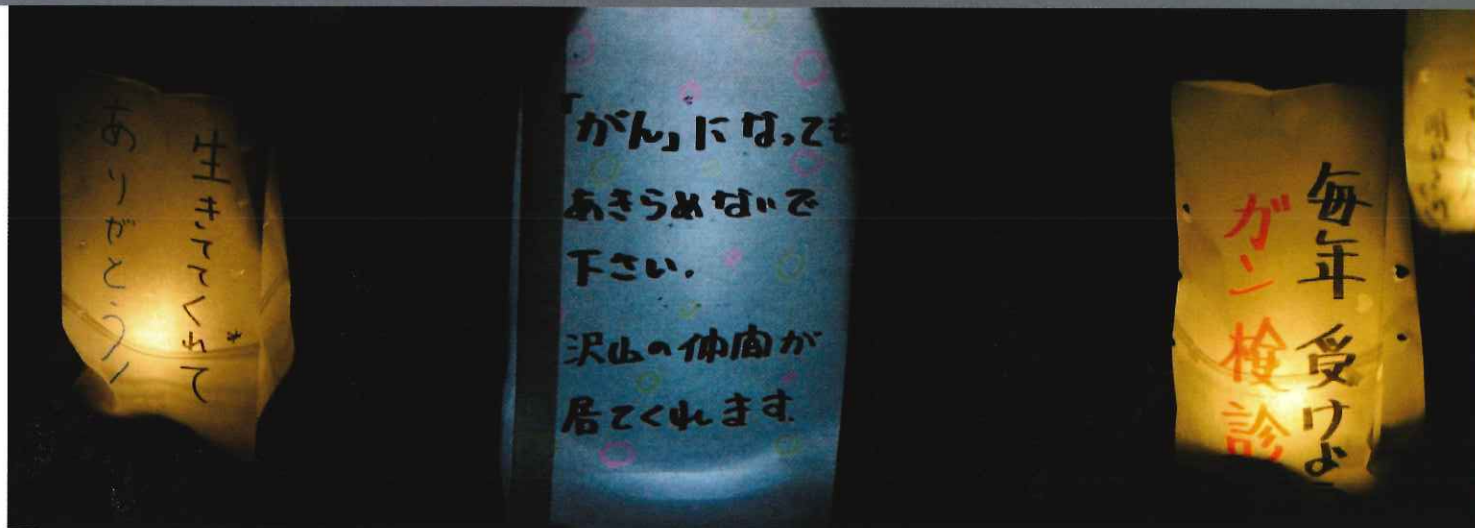 生きててくれて
ありがとう!
「がん」になっても
あきらめないで
下さい.
沢山の仲間が
居てくれます.
毎年 受けよ
ガン 検診